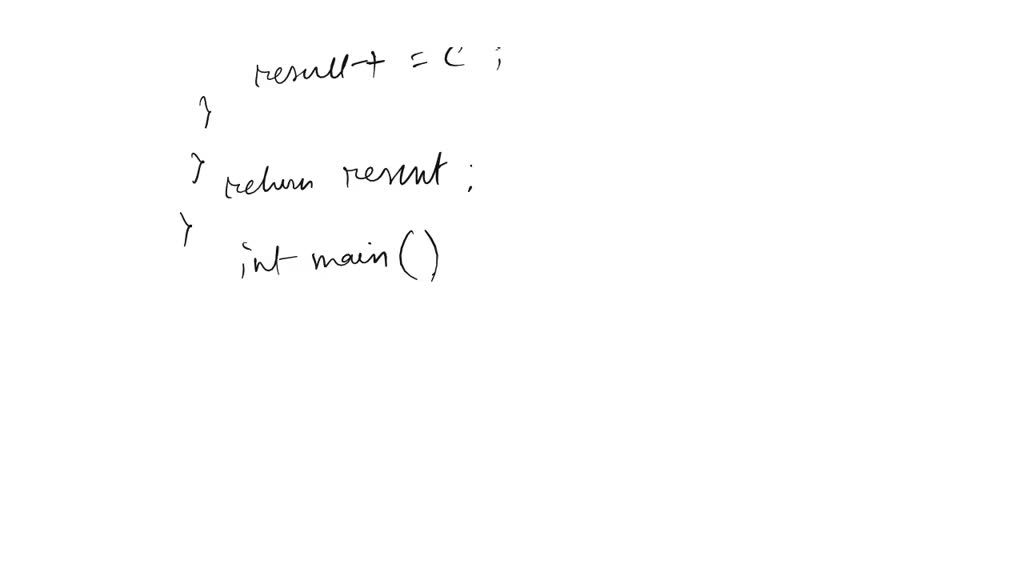 result += c ;
}
} return result ;
}
int main()